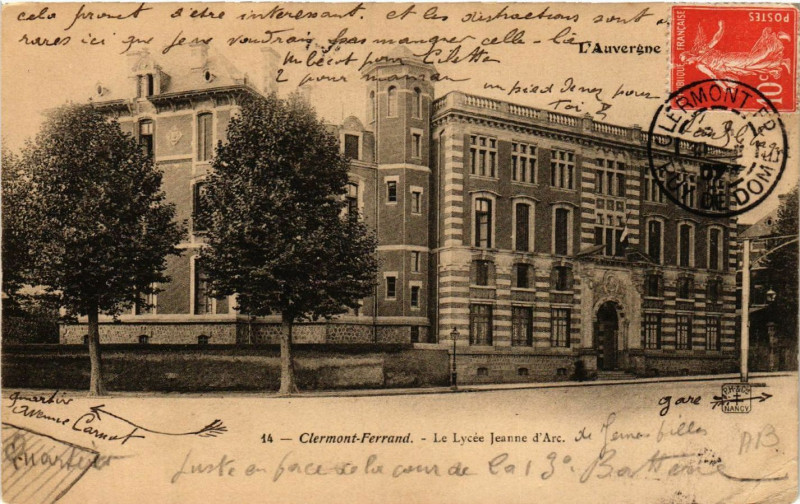 cela promet d'être interessant. et les distractions sont
rares ici que je voudrais pas manquer celle-là
L'Auvergne
un bécot pour Lilette
2 pour maman
un pied denez pour
Toi
POSTES
10
CLERMONT-FD
PUY-DE-DOME
quartier
avenue Carnot
gare
NANCY
14 — Clermont-Ferrand. - Le Lycée Jeanne d'Arc. de Jeunes filles
Quartier
Juste en face de la cour de la 13e Batterie